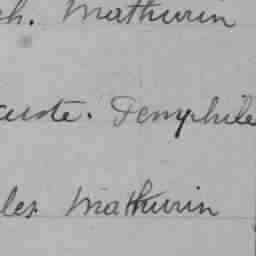 ch. Mathurin
Demphile
les Mathurin